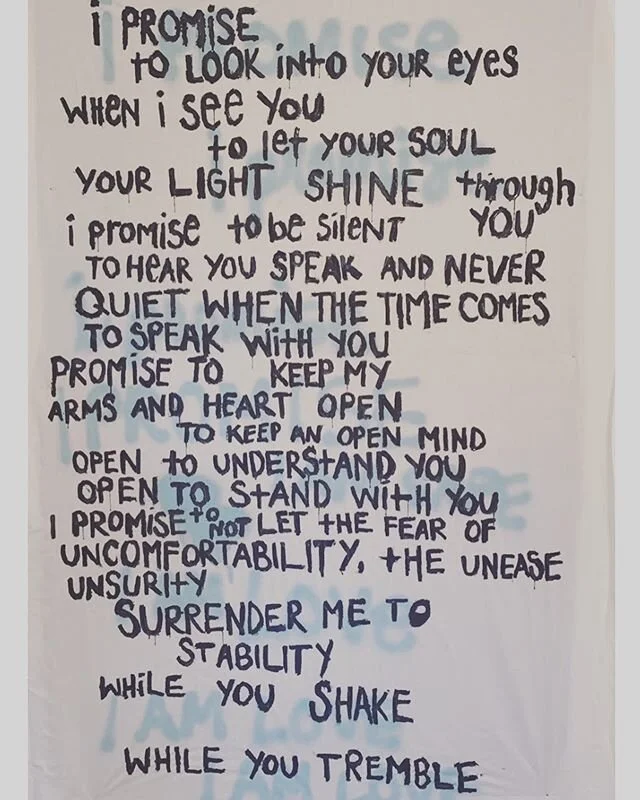 i PROMiSE
to LOOK into YOUR eyes
WHeN i see YOU
to let YOUR SOUL
YOUR LIGHT SHINE through
i promise to be SileNT YOU
TO HeAR YOU SPEAK AND NEVER
QUIET WHEN THE TIME COMES
TO SPEAK WitH YOU
PROMISE TO KEEP MY
ARMS AND HEART OPEN
TO KEEP AN OPEN MIND
OPEN to UNDERStAND YOU
OPEN TO StAND WitH YOU
I PROMISE to NOT LET tHE FEAR OF
UNCOMFORTABILITY, tHE UNEASE
UNSURItY
SURRENDER ME TO
STABILITY
WHiLE YOU SHAKE
WHILE YOU TREMBLE
I AM LOVE